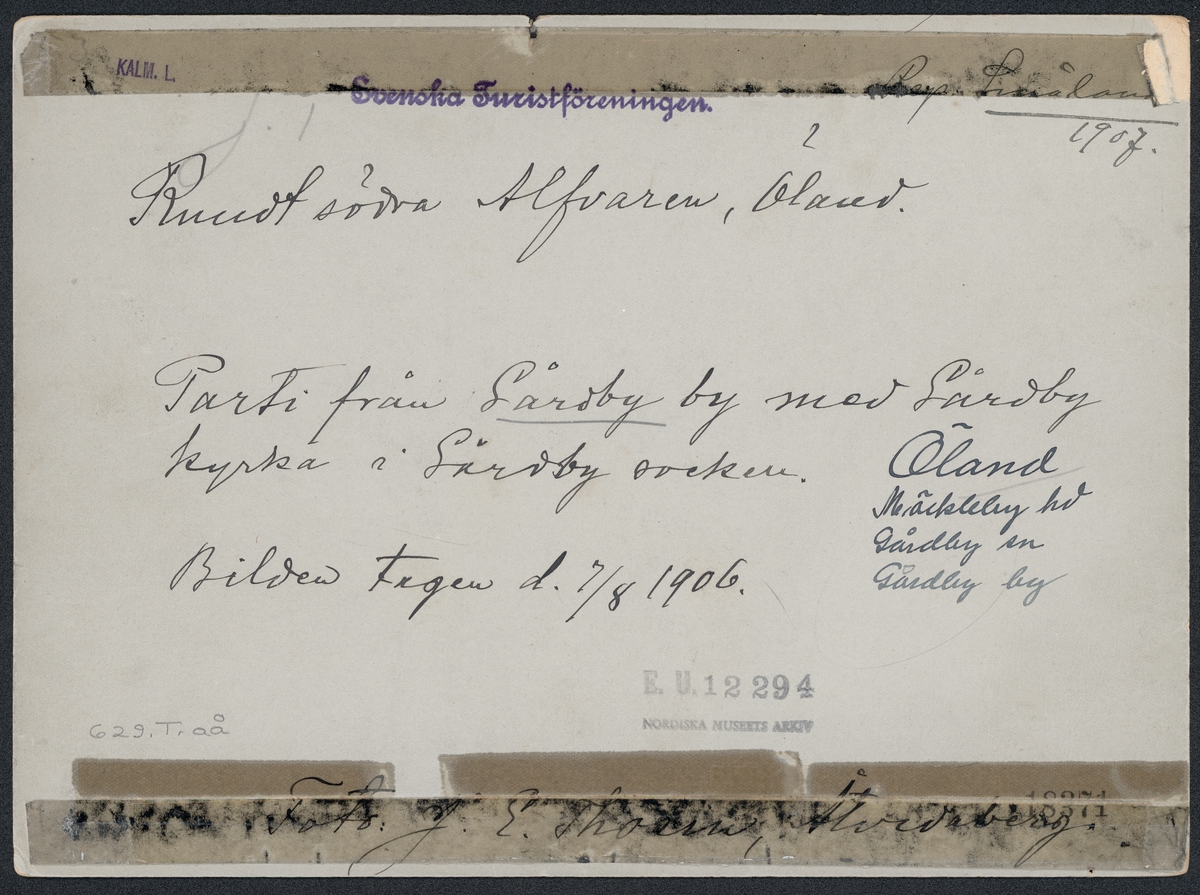 KALM. L.
Svenska Turistföreningen.
Rep. Småland
1907.
Rundt södra Alfvaren, Öland.
Parti från Gårdby by med Gårdby
kyrka i Gårdby socken.
Öland
Möckleby hd
Gårdby sn
Gårdby by
Bilden tagen d. 7/8 1906.
E. U. 12 294
NORDISKA MUSEETS ARKIV
629. T. aå
18371
Foto: J. E. Thorin, Åtvidaberg.